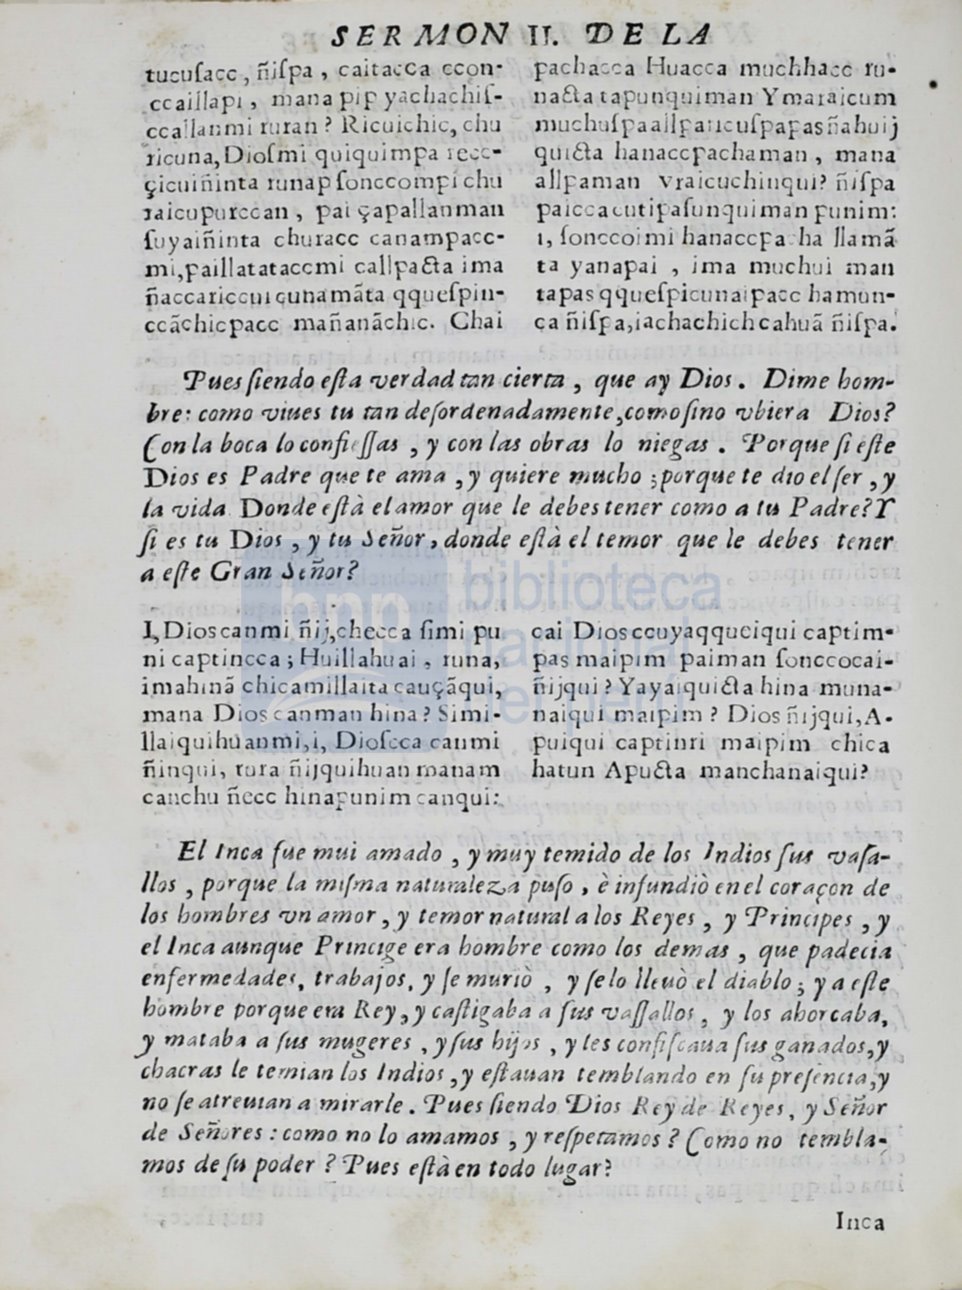 SERMON II. DE LA
tucuſacc, ñiſpa, caitaccа ccon-
ccaillapi, mana pip yachachiſ-
ccallanmi ruran? Ricuichic, chu
ricuna, Dioſmi quiquimpa recc-
çicuiñinta runap ſonccompi chu
raicupurccan, pai çapallanman
ſuyaiñinta churacc canampacc-
mi, paillatataccmi callpacta ima
ñaccariccuicunamãta qqueſpin-
ccãchicpacc mañanãchic. Chai
pachacca Huacca muchhacc ru-
nacta tapunquiman Ymaraicum
muchuſpa allparicuſpapas ñahuij
quicta hanaccpachaman, mana
allpaman vraicuchinqui? ñiſpa
paicca cutipaſunquiman punim:
i, ſonccoimi hanaccpacha llamã
ta yanapai, ima muchui man
tapas qqueſpicunaipacc hamun-
ca ñiſpa, iachachichcahuã ñiſpa.
Pues ſiendo eſta verdad tan cierta, que ay Dios. Dime hom-
bre: como viues tu tan deſordenadamente, como ſino vbiera Dios?
Con la boca lo confieſſas, y con las obras lo niegas. Porque ſi eſte
Dios es Padre que te ama, y quiere mucho; porque te dio el ſer, y
la vida Donde eſtà el amor que le debes tener como a tu Padre? Y
ſi es tu Dios, y tu Señor, donde eſtà el temor que le debes tener
a eſte Gran Señor?
I, Dios canmi ñij, checca ſimi pu
ni captincca; Huillahuai, runa,
imahinã chicamillaita cauçãqui,
mana Dios canman hina? Simi-
llaiquihuanmi, i, Dioſcca canmi
ñinqui, rura ñijquihuan manam
canchu ñecc hinapunim canqui:
cai Dios ccuyaqqueiqui captim-
pas maipim paiman ſonccocai-
ñijqui? Yayaiquicta hina muna-
naiqui maipim? Dios ñijqui, A-
puiqui captinri maipim chica
hatun Apucta manchanaiqui?
El Inca fue mui amado, y muy temido de los Indios ſus vaſa-
llos, porque la miſma naturaleza puſo, è infundiò en el coraçon de
los hombres vn amor, y temor natural a los Reyes, y Principes, y
el Inca aunque Principe era hombre como los demas, que padecia
enfermedades, trabajos, y ſe muriò, y ſe lo lleuò el diablo; y a eſte
hombre porque era Rey, y caſtigaba a ſus vaſſallos, y los ahorcaba,
y mataba a ſus mugeres, y ſus hijos, y les confiſcaua ſus ganados, y
chacras le temian los Indios, y eſtauan temblando en ſu preſencia, y
no ſe atreuian a mirarle. Pues ſiendo Dios Rey de Reyes, y Señor
de Señores: como no lo amamos, y reſpetamos? Como no tembla-
mos de ſu poder? Pues eſtà en todo lugar?
Inca
biblioteca
nacional
del perú
bnp